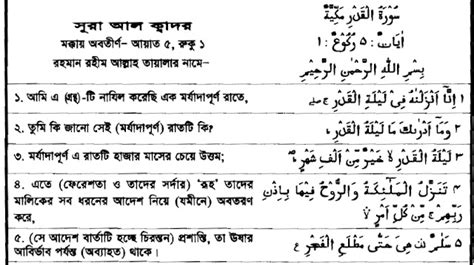 সূরা আল ক্বাদর
মক্কায় অবতীর্ণ– আয়াত ৫, রুকু ১
রহমান রহীম আল্লাহ তায়ালার নামে–
سُوْرَةُ الْقَدْرِ مَكِّيَّةٌ
اٰيَاتُ : ٥ رُكُوْعٌ : ١
بِسْمِ اللّٰهِ الرَّحْمٰنِ الرَّحِيْمِ
১. আমি এ (গ্রন্থ)-টি নাযিল করেছি এক মর্যাদাপূর্ণ রাতে,
١ اِنَّا اَنْزَلْنٰهُ فِىْ لَيْلَةِ الْقَدْرِ ج صلے
২. তুমি কি জানো সেই (মর্যাদাপূর্ণ) রাতটি কি?
٢ وَمَا اَدْرٰىكَ مَا لَيْلَةُ الْقَدْرِ ط
৩. মর্যাদাপূর্ণ এ রাতটি হাজার মাসের চেয়ে উত্তম;
٣ لَيْلَةُ الْقَدْرِ لا خَيْرٌ مِّنْ اَلْفِ شَهْرٍ ط
৪. এতে (ফেরেশতা ও তাদের সর্দার) 'রূহ' তাদের
মালিকের সব ধরনের আদেশ নিয়ে (যমীনে) অবতরণ
করে,
٤ تَنَزَّلُ الْمَلٰٓئِكَةُ وَالرُّوْحُ فِيْهَا بِاِذْنِ
رَبِّهِمْ ج مِنْ كُلِّ اَمْرٍ لا
৫. (সে আদেশ বার্তাটি হচ্ছে চিরন্তন) প্রশান্তি, তা ঊষার
আবির্ভাব পর্যন্ত (অব্যাহত) থাকে।
٥ سَلٰمٌ قف هِىَ حَتّٰى مَطْلَعِ الْفَجْرِ ع